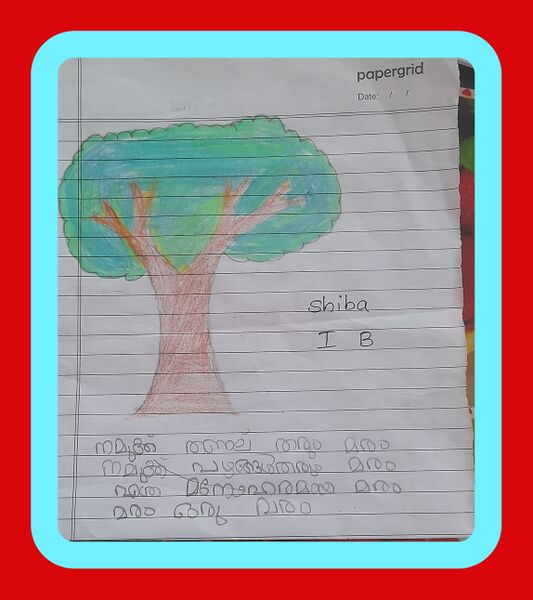 papergrid
Date: / /
shiba
I B
നമുക്ക് തണല് തരും മരം
നമുക്ക് പഴങ്ങൾതരും മരം
എന്ത മനോഹരമായ മരം
മരം ഒരു വരം